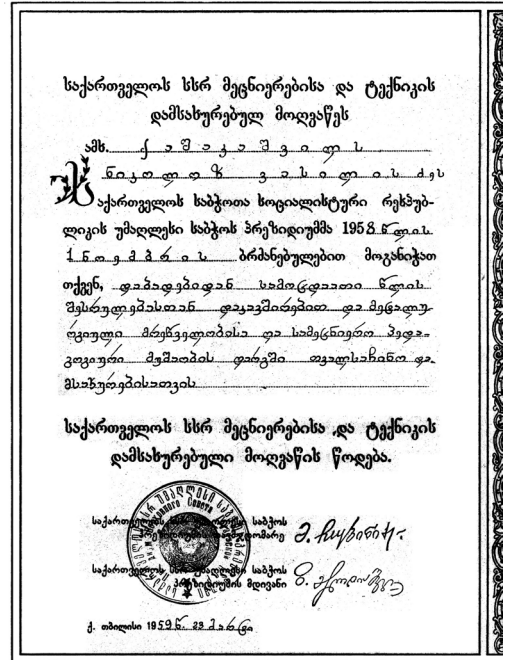 საქართველოს სსრ მეცნიერებისა და ტექნიკის
დამსახურებულ მოღვაწეს
ამხ. ქაშაკაშვილს
ნიკოლოზ ვასილის ძეს
საქართველოს საბჭოთა სოციალისტური რესპუბ-
ლიკის უმაღლესი საბჭოს პრეზიდიუმმა 1958 წლის
1 ნოემბრის ბრძანებულებით მოგანიჭათ
თქვენ, დაბადებიდან სამოცდაათი წლის
შესრულებასთან დაკავშირებით და მეტალუ-
რგიული მრეწველობისა და სამეცნიერო პედა-
გოგიური მუშაობის დარგში თვალსაჩინო და-
მსახურებისათვის
საქართველოს სსრ მეცნიერებისა და ტექნიკის
დამსახურებული მოღვაწის წოდება.
საქართველოს სსრ უმაღლესი საბჭოს
პრეზიდიუმის თავმჯდომარე
საქართველოს სსრ უმაღლესი საბჭოს
პრეზიდიუმის მდივანი
ქ. თბილისი 1959 წ. 23 მარტი